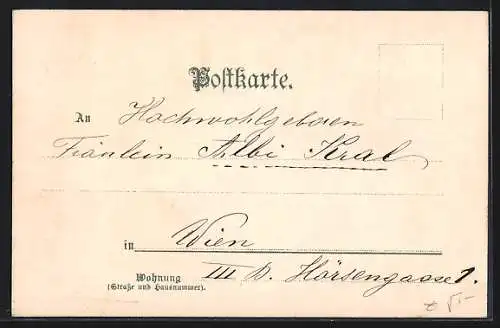 Postkarte.
An Hochwohlgeboren
Fräulein Albi Kral
in Wien
Wohnung
(Straße und Hausnummer).
III B. Hörsengasse 1.